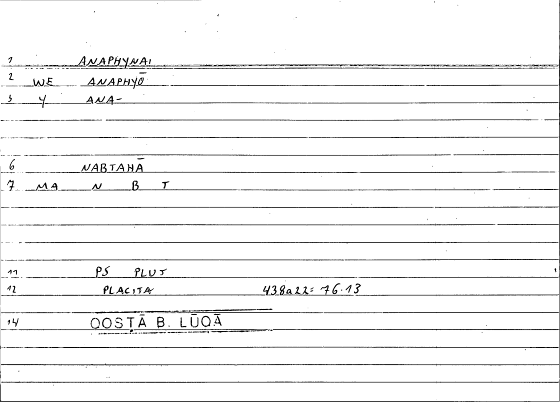 1 ANAPHYNAI
2 WE ANAPHYŌ
3 Y ANA-
6 NABTAHĀ
7 MA N B T
11 PS PLUT
12 PLACITA 438a22= 76.13
14 QOSṬĀ B. LŪQĀ